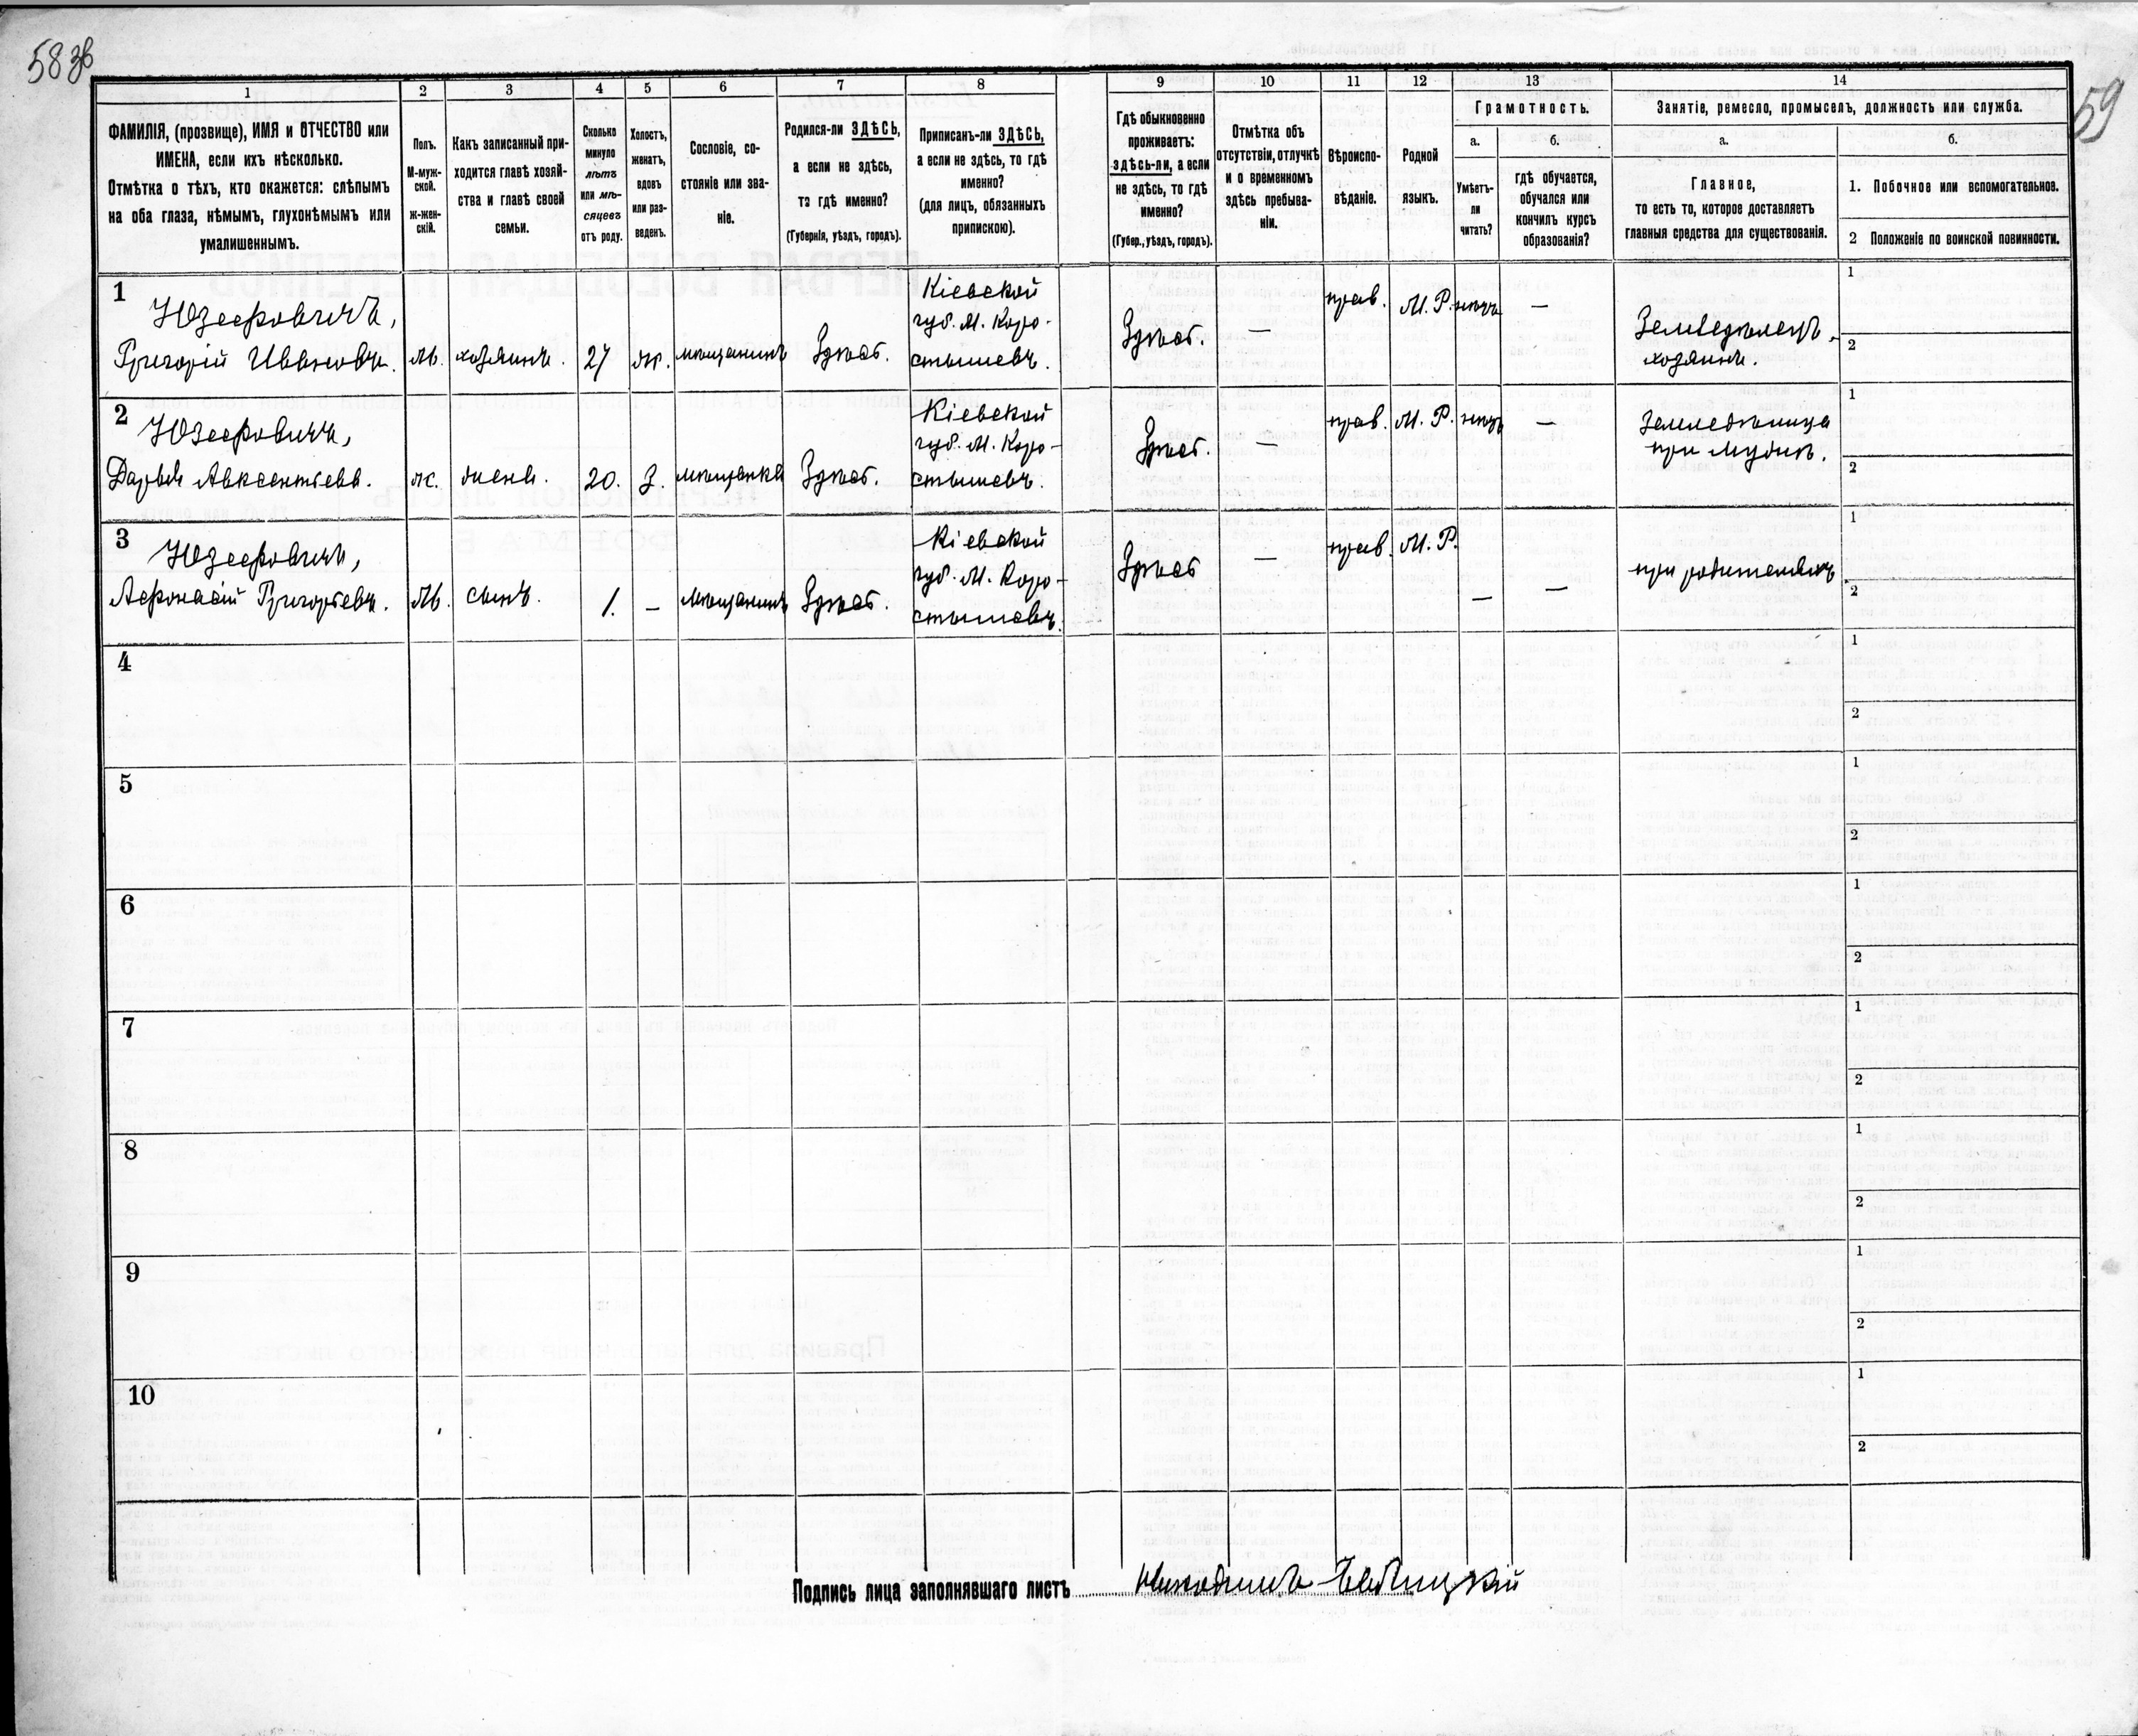 58 зв
59
1
2
3
4
5
6
7
8
9
10
11
12
13
14
ФАМИЛІЯ, (прозвище), ИМЯ и ОТЧЕСТВО или
ИМЕНА, если ихъ нѣсколько.
Отмѣтка о тѣхъ, кто окажется: слѣпымъ
на оба глаза, нѣмымъ, глухонѣмымъ или
умалишеннымъ.
Полъ.
М-муж-
ской.
ж-жен-
скій.
Какъ записанный при-
ходится главѣ хозяй-
ства и главѣ своей
семьи.
Сколько
минуло
лѣтъ
или мѣ-
сяцевъ
отъ роду.
Холостъ,
женатъ,
вдовъ
или раз-
веденъ.
Сословіе, со-
стояніе или зва-
ніе.
Родился-ли ЗДѢСЬ,
а если не здѣсь,
то гдѣ именно?
(Губернія, уѣздъ, городъ).
Приписанъ-ли ЗДѢСЬ,
а если не здѣсь, то гдѣ
именно?
(для лицъ, обязанныхъ
припискою).
Гдѣ обыкновенно
проживаетъ:
здѣсь-ли, а если
не здѣсь, то гдѣ
именно?
(Губер., уѣздъ, городъ).
Отмѣтка объ
отсутствіи, отлучкѣ
и о временномъ
здѣсь пребыва-
ніи.
Вѣроиспо-
вѣданіе.
Родной
языкъ.
Грамотность.
а.
Умѣетъ-
ли
читать?
б.
гдѣ обучается,
обучался или
кончилъ курсъ
образованія?
Занятіе, ремесло, промыселъ, должность или служба.
а.
Главное,
то есть то, которое доставляетъ
главныя средства для существованія.
б.
1. Побочное или вспомогательное.
2 Положеніе по воинской повинности.
1
Юзефовичъ,
Григорій Ивановъ.
М.
хозяинъ.
27
ж.
мѣщанинъ
Здѣсь.
Кіевской
губ. М. Коро-
стышевъ.
Здѣсь.
—
прав.
М. Р.
нѣтъ
—
Земледѣлецъ.
хозяинъ.
1
2
2
Юзефовичъ,
Дарья Авксентьева.
ж.
жена.
20.
З.
мѣщанка
Здѣсь.
Кіевской
губ. М. Коро-
стышевъ.
Здѣсь.
—
прав.
М. Р.
нѣтъ
—
Земледѣлица
при мужѣ.
1
2
3
Юзефовичъ,
Афонасій Григорьевъ.
М.
сынъ.
1.
—
Мѣщанинъ
Здѣсь.
Кіевской
губ. М. Коро-
стышевъ.
Здѣсь
—
прав.
М. Р.
—
—
при родителяхъ
1
2
4
1
2
5
1
2
6
1
2
7
1
2
8
1
2
9
1
2
10
1
2
Подпись лица заполнявшаго листъ
Никодимъ